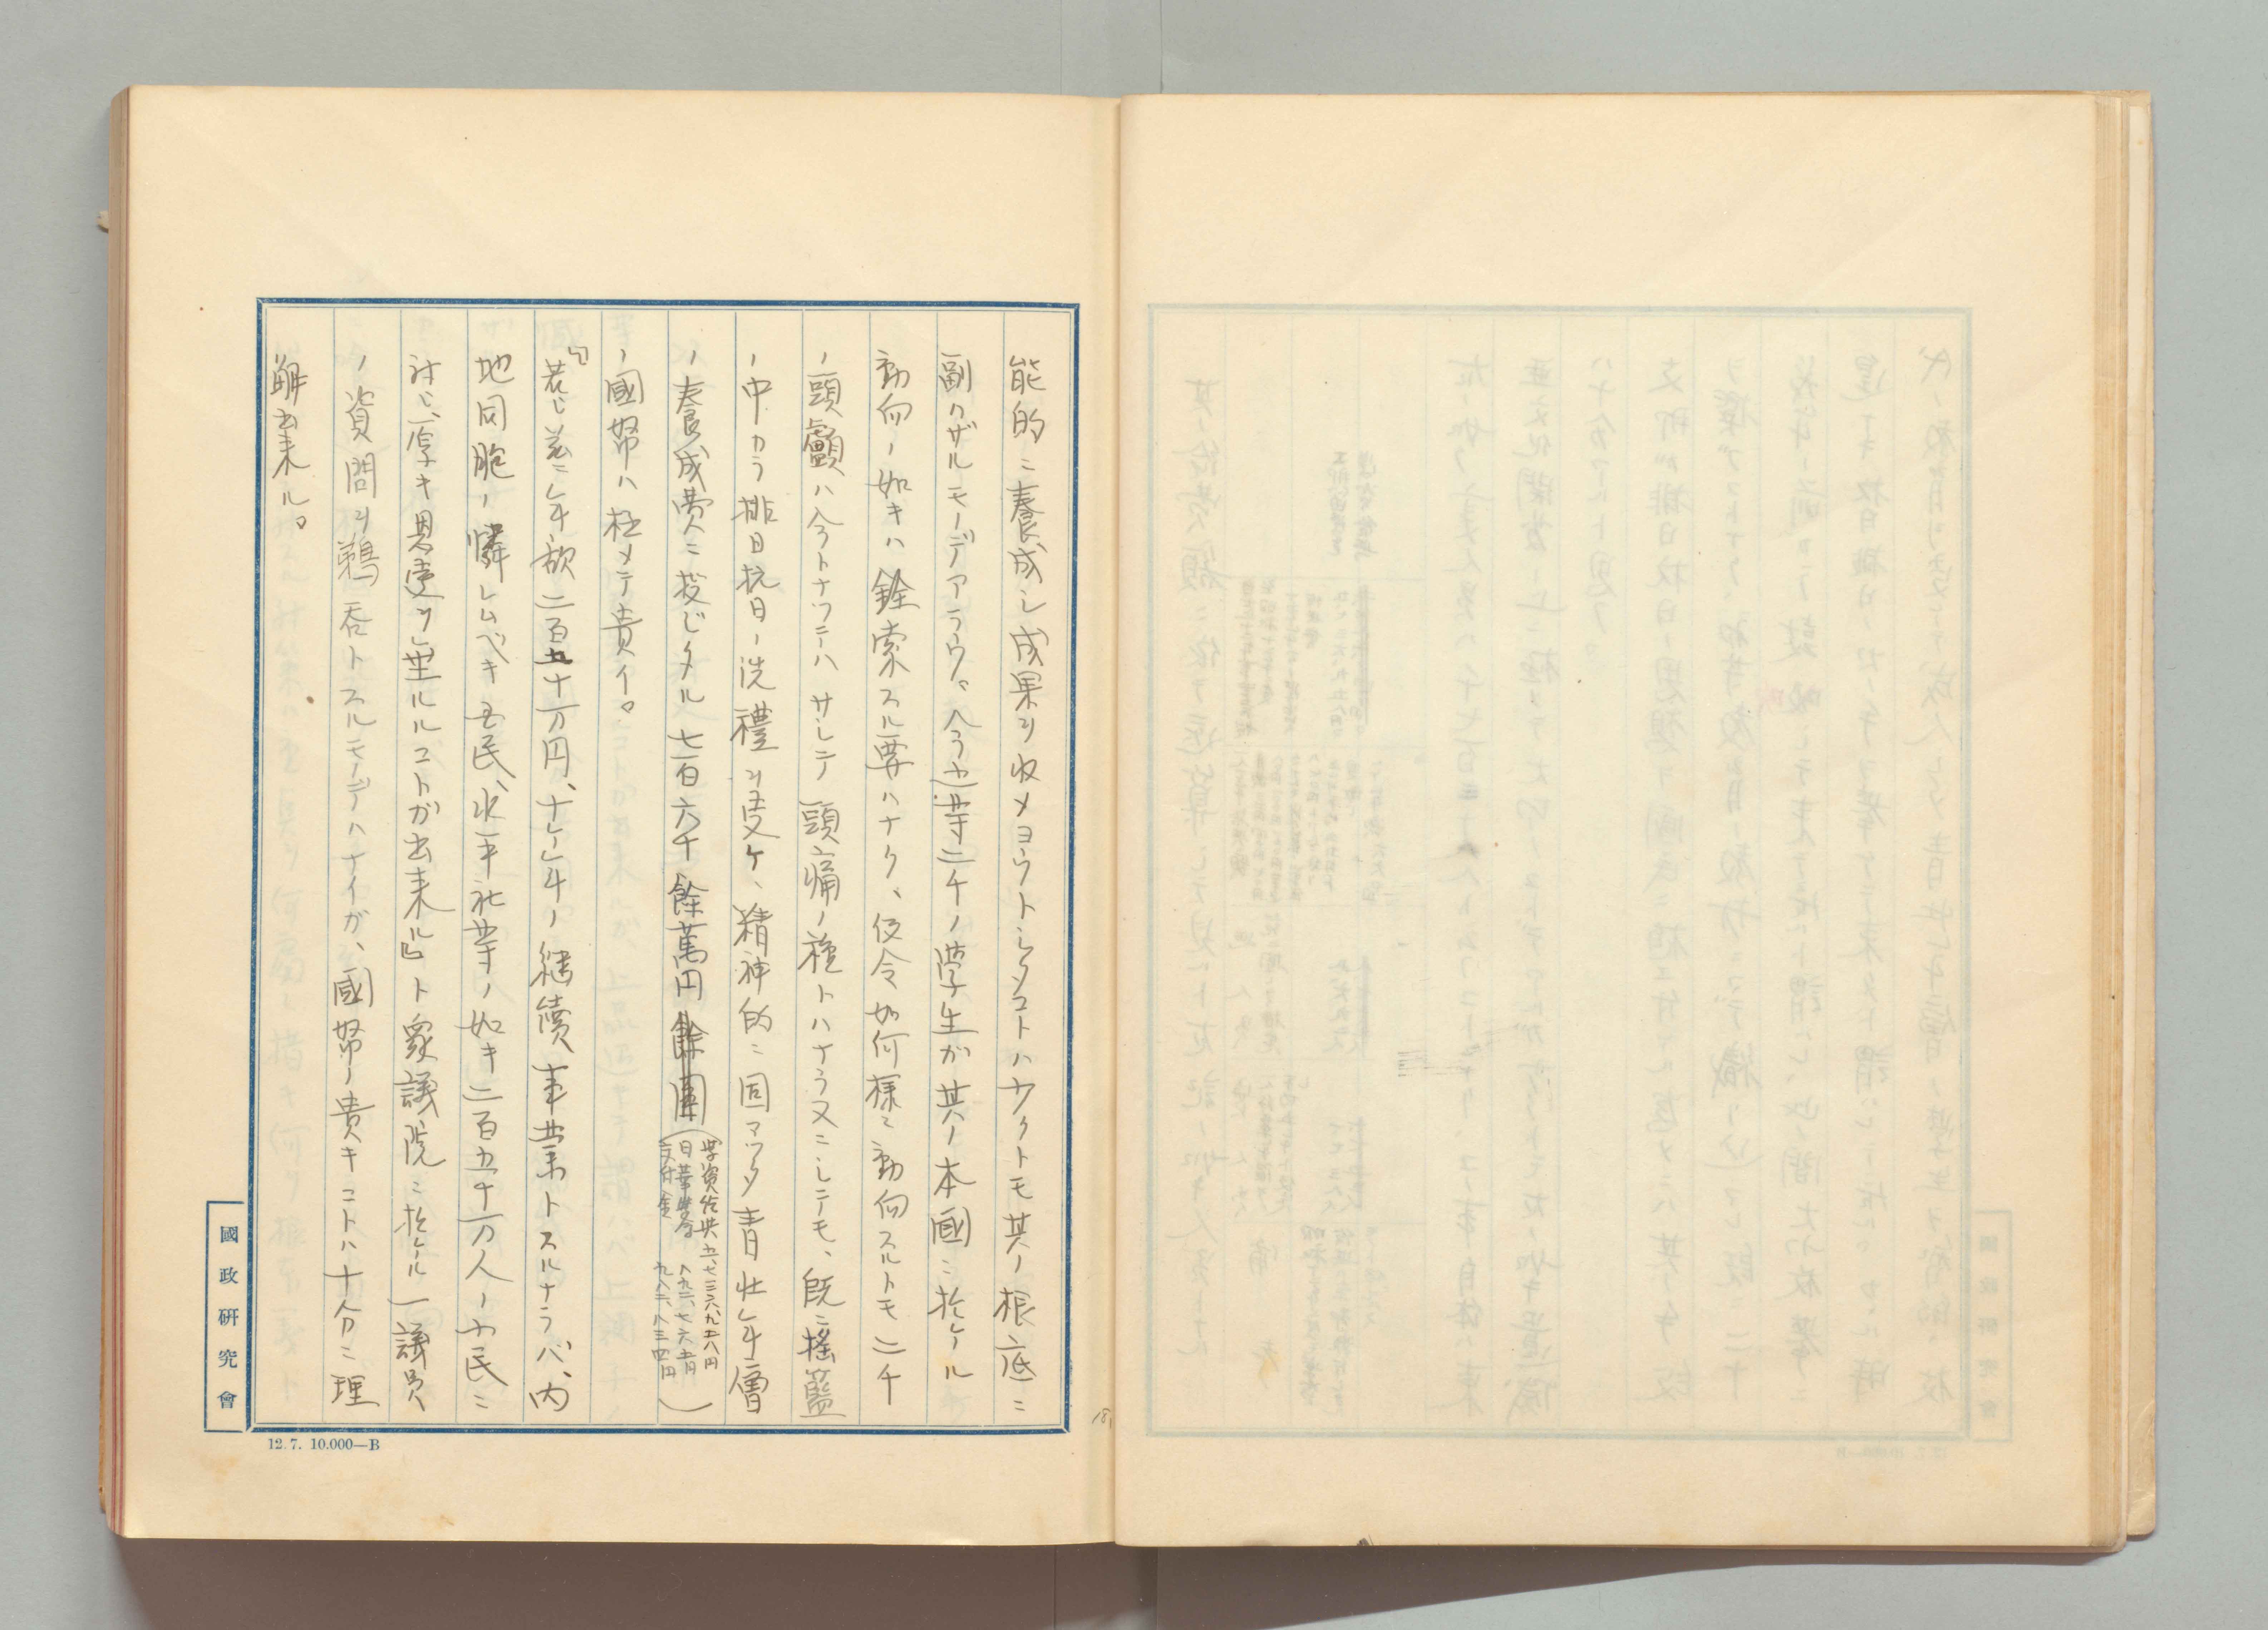 能的ニ養成シ成果ヲ收メヨウトシタコトハ少クトモ其ノ根底ニ
副ハザルモノデアラウ。今ヤ此等二千ノ學生ガ其ノ本國ニ於ケル
動向ノ如キハ詮索スル要ハナク、仮令如何樣ニ動向スルトモ二千
ノ頭顱ハ今トナツテハサシテ頭痛ノ種トハナラヌニシテモ、既ニ搖籃
ノ中カラ排日抗日ノ洗禮ヲ受ケ、精神的ニ固マツタ青壯年層
ノ養成費ニ投ジタル七百六千餘萬円
(學資給與五、七三六、九五八円
日華學會 八九二、七六五円
交付金 九八六、八三四円)
ノ國帑ハ極メテ貴イ。
『若シ茲ニ年額二百五十万円、十ケ年ノ継續事業トスルナラバ、内
地同胞ノ憐レムベキ窮民、水平社等ノ如キ二百五十万人ノ少民ニ
対シ、厚キ恩恵ヲ垂ルルコトガ出来ル』ト衆議院ニ於ケル一議員
ノ資問ヲ鵜呑トスルモノデハナイガ、國帑ノ貴キコトハ十分ニ理
解出来ル。
國政研究會
12.7. 10.000—B